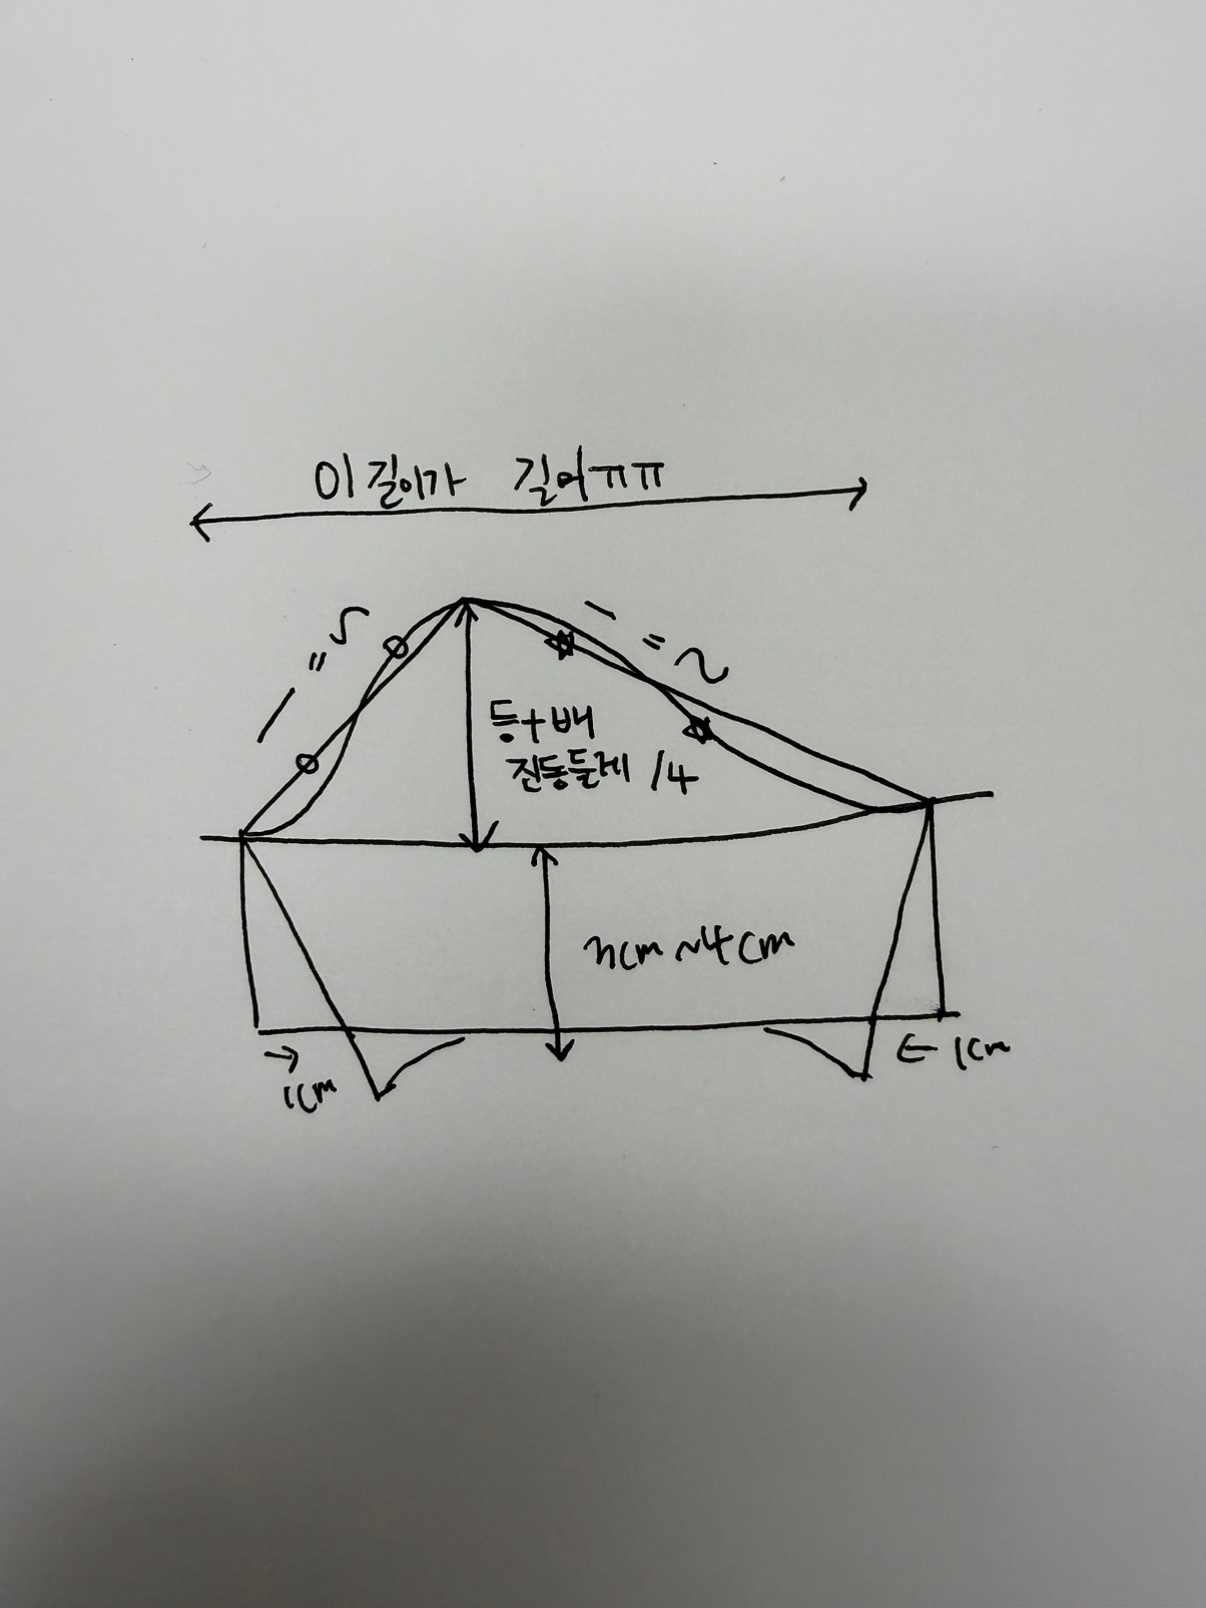 이 길이가 길어ㅠㅠ
등+배
진동둘레 /4
3cm ~4cm
1cm
1cm